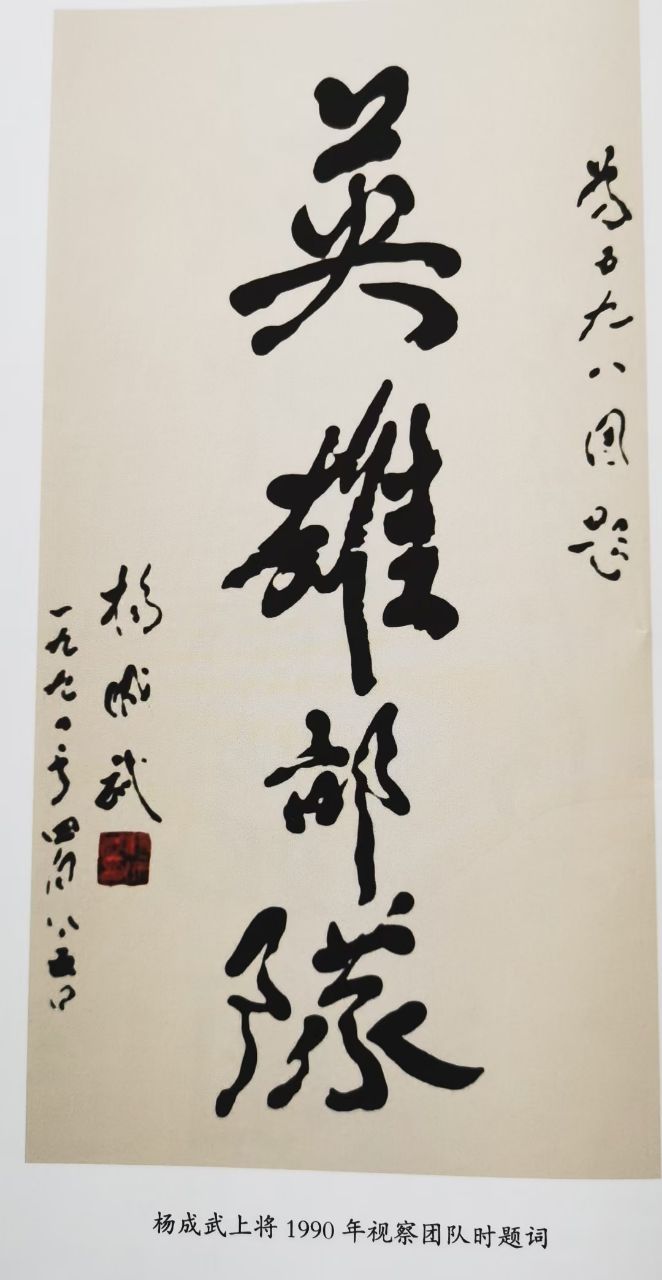 為五九八團題
英雄部隊
楊成武
一九九〇年四月五日
杨成武上将1990年视察团队时题词